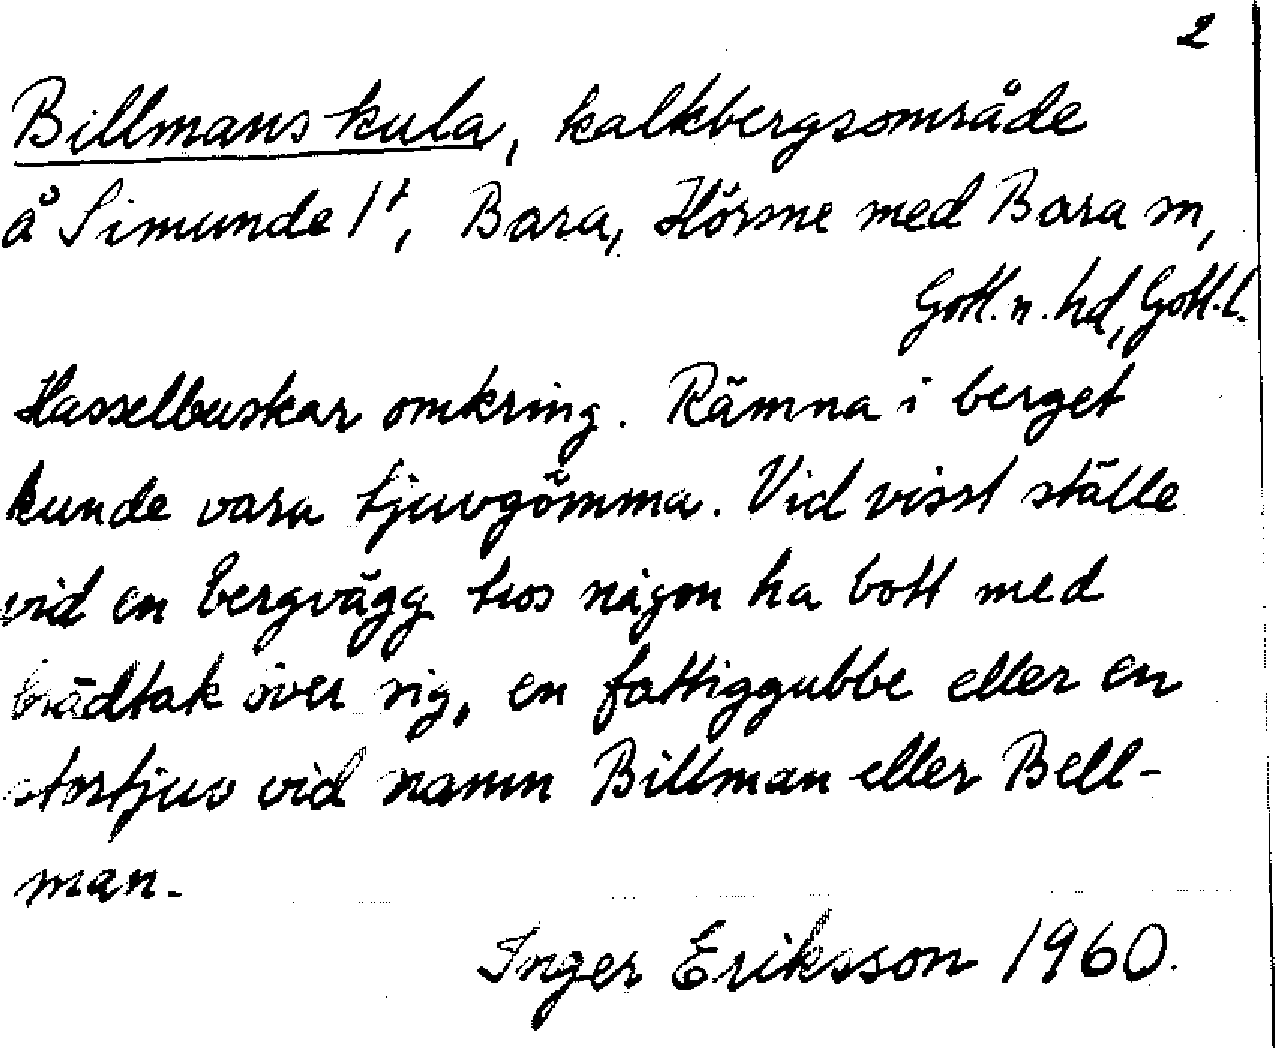 2
Billmans kula, kalkbergsområde
å Simunde 1⁴, Bara, Hörsne med Bara sn,
Gotl. n. hd, Gotl. l.
Hasselbuskar omkring. Rämna i berget
kunde vara tjuvgömma. Vid visst ställe
vid en bergvägg tros någon ha bott med
brädtak över sig, en fattiggubbe eller en
stortjuv vid namn Billman eller Bell-
man.
Inger Eriksson 1960.